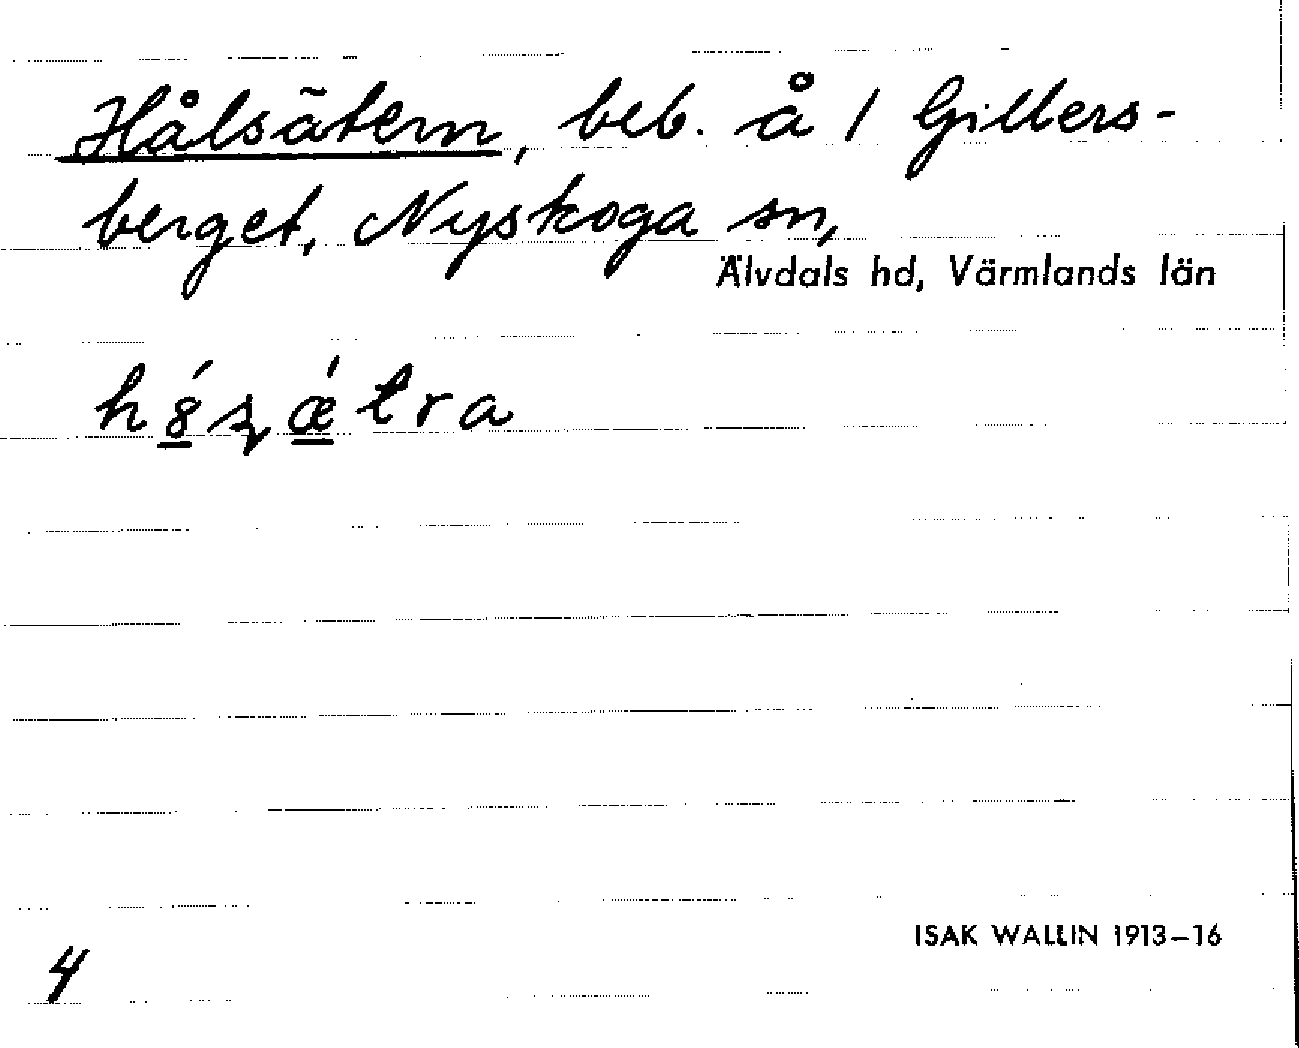 Hålsätern, beb. å 1 Gillers-
berget, Nyskoga sn,
Älvdals hd, Värmlands län
ISAK WALLIN 1913–16
4